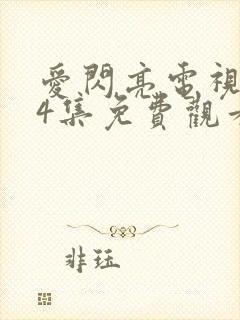 愛閃亮電視
4集免費觀
非珏